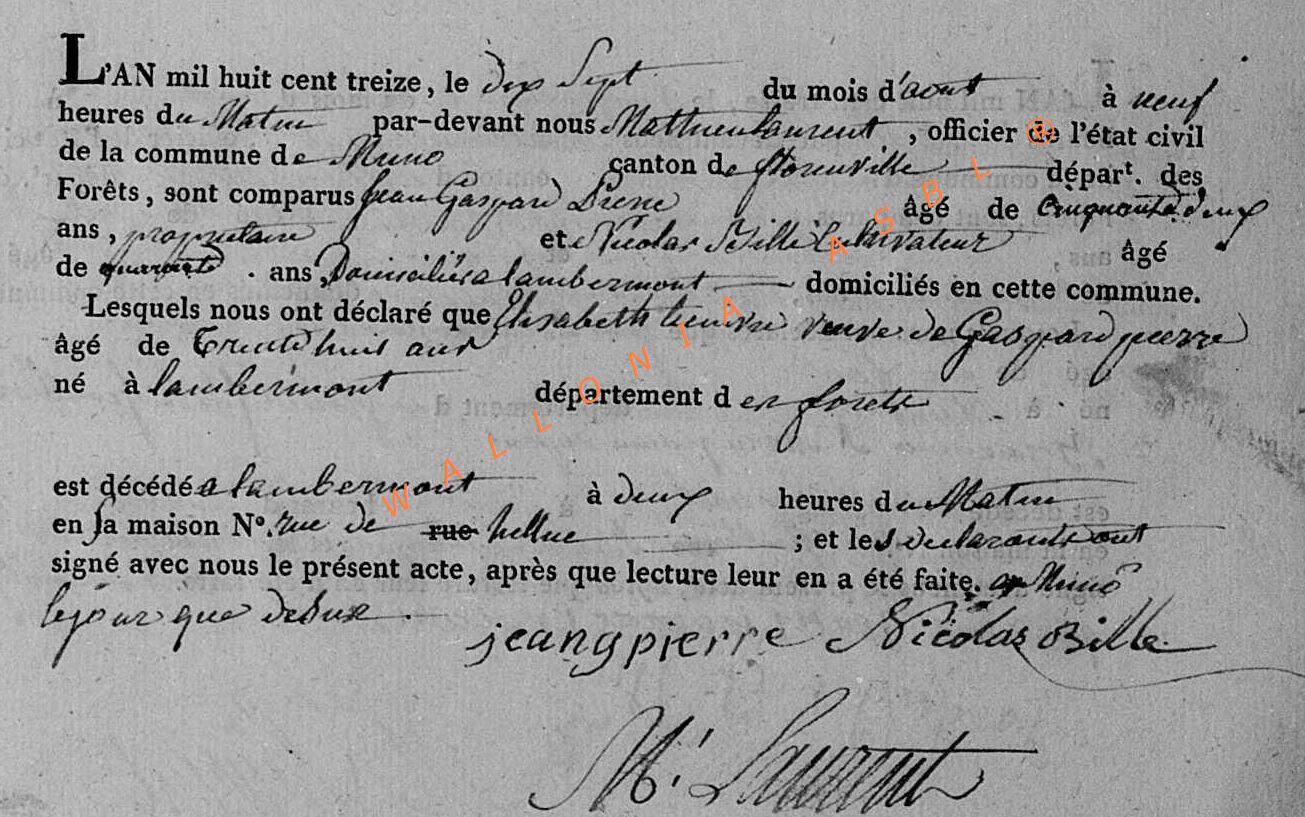 L'AN mil huit cent treize, le dix Sept du mois d'aout à neuf
heures du Matin par-devant nous Mathieu Laurent, officier de l'état civil
de la commune de Muno canton de florenville départ. des
Forêts, sont comparus Jean Gaspard âgé de Cinquante deux
ans, proprietaire et Nicolas Bille Cultivateur âgé
de quarante ans, Domiciliés a lambermont domiciliés en cette commune.
Lesquels nous ont déclaré que Elisabeth veuve de Gaspard pierre
âgé de Trente huit ans
né à lambermont département des forets
est décédé a lambermont à deux heures du Matin
en sa maison N°. rue de rue ; et les declarants ont
signé avec nous le présent acte, après que lecture leur en a été faite. a Muno
le jour que dessus
jeangpierre Nicolas Bille
M. Laurent
WALLONIA ASBL ®